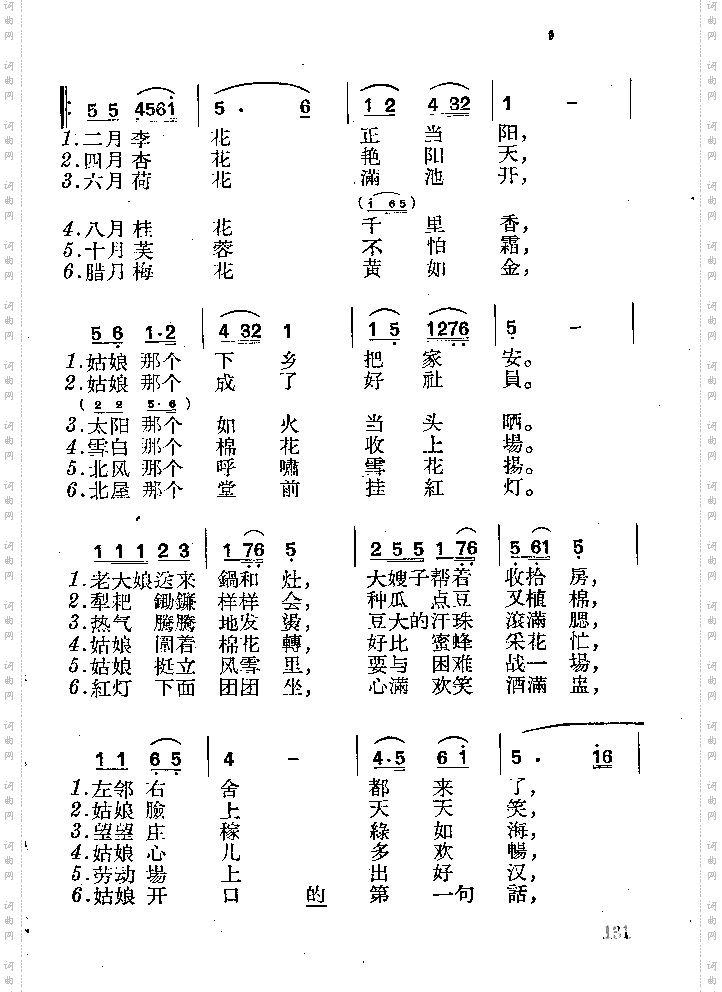 5 5 4561 | 5 . 6 | 1 2 4 32 | 1 –
1.二月李花正当阳,
2.四月杏花艳阳天,
3.六月荷花滿池开,
(1 65)
4.八月桂花千里香,
5.十月芙蓉不怕霜,
6.腊月梅花黄如金,
5 6 1·2 | 4 32 1 | 1 5 1276 | 5 –
1.姑娘那个下乡把家安。
2.姑娘那个成了好社員。
(2 2 5·6)
3.太阳那个如火当头晒。
4.雪白那个棉花收上場。
5.北风那个呼嘯雪花揚。
6.北屋那个堂前挂紅灯。
1 1 1 2 3 | 1 76 5 | 2 5 5 1 76 | 5 61 5
1.老大娘送来鍋和灶,大嫂子帮着收拾房,
2.犁耙鋤鐮样样会,种瓜点豆又植棉,
3.热气騰騰地发燙,豆大的汗珠滾滿腮,
4.姑娘圍着棉花轉,好比蜜蜂采花忙,
5.姑娘挺立风雪里,要与困难战一場,
6.紅灯下面团团坐,心滿欢笑酒滿盅,
1 1 6 5 | 4 – | 4·5 6 1 | 5 . 16
1.左邻右舍都来了,
2.姑娘臉上天天笑,
3.望望庄稼綠如海,
4.姑娘心儿多欢暢,
5.劳动場上出好汉,
6.姑娘开口的第一句話,
131
词曲网